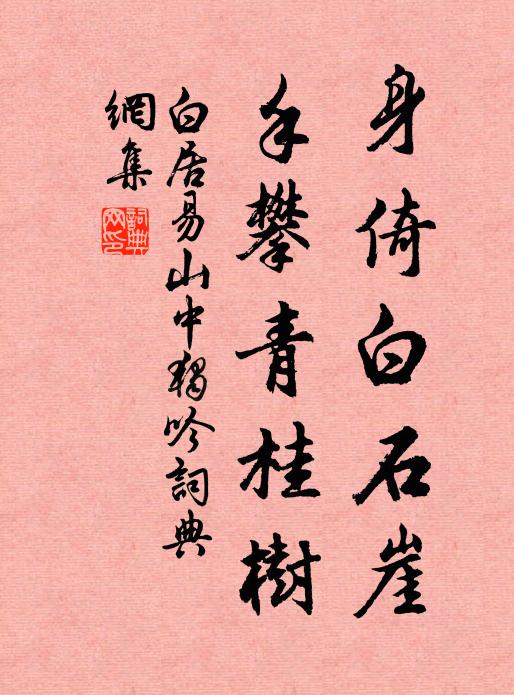 身倚白石崖
手攀青桂樹
白居易山中獨吟詞典
網集
詞典网印